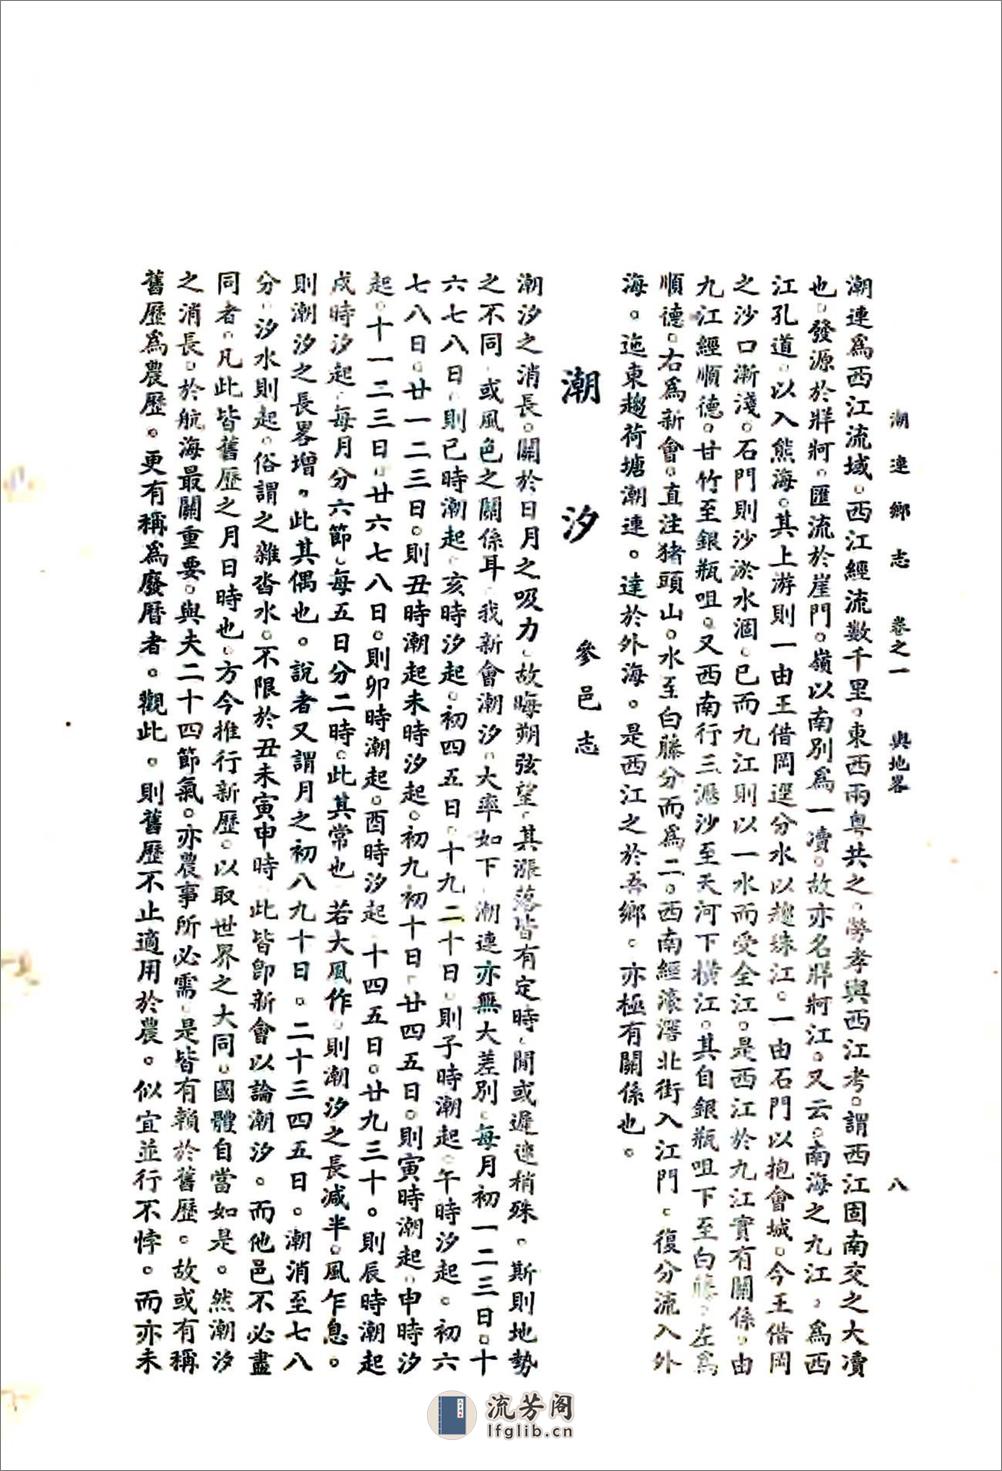 潮連鄉志 卷之一 輿地畧 八
潮連為西江流域。西江經流數千里。東西兩粵共之。勞孝與西江考。謂西江固南交之大瀆
也。發源於牂牁。匯流於崖門。嶺以南別為一瀆。故亦名牂牁江。又云。南海之九江，為西
江孔道。以入熊海。其上游則一由王借岡逕分水以趨珠江。一由石門以抱會城。今王借岡
之沙口漸淺。石門則沙淤水涸。已而九江則以一水而受全江。是西江於九江實有關係。由
九江經順德。甘竹至銀瓶咀。又西南行三漶沙至天河下橫江。其自銀瓶咀下至白藤。左為
順德。右為新會。直注猪頭山。水至白藤分而為二。西南經滾滘北街入江門。復分流入外
海。迤東趨荷塘潮連。達於外海。是西江之於吾鄉。亦極有關係也。
潮汐 參邑志
潮汐之消長。關於日月之吸力。故晦朔弦望。其漲落皆有定時。閒或遲速稍殊。斯則地勢
之不同。或風色之關係耳。我新會潮汐。大率如下。潮連亦無大差別。每月初一二三日。十
六七八日。則巳時潮起。亥時汐起。初四五日。十九二十日。則子時潮起。午時汐起。初六
七八日。廿一二三日。則丑時潮起未時汐起。初九初十日。廿四五日。則寅時潮起。申時汐
起。十一二三日。廿六七八日。則卯時潮起。酉時汐起。十四五日。廿九三十。則辰時潮起
戌時汐起。每月分六節。每五日分二時。此其常也。若大風作。則潮汐之長減半。風乍息。
則潮汐之長畧增。此其偶也。說者又謂月之初八九十日。二十三四五日。潮消至七八
分。汐水則起。俗謂之雜沓水。不限於丑未寅申時。此皆卽新會以論潮汐。而他邑不必盡
同者。凡此皆舊歷之月日時也。方今推行新歷。以取世界之大同。國體自當如是。然潮汐
之消長。於航海最關重要。與夫二十四節氣。亦農事所必需。是皆有賴於舊歷。故或有稱
舊歷為農歷。更有稱為廢曆者。觀此。則舊歷不止適用於農。似宜並行不悖。而亦未
流芳阁
lfglib.cn